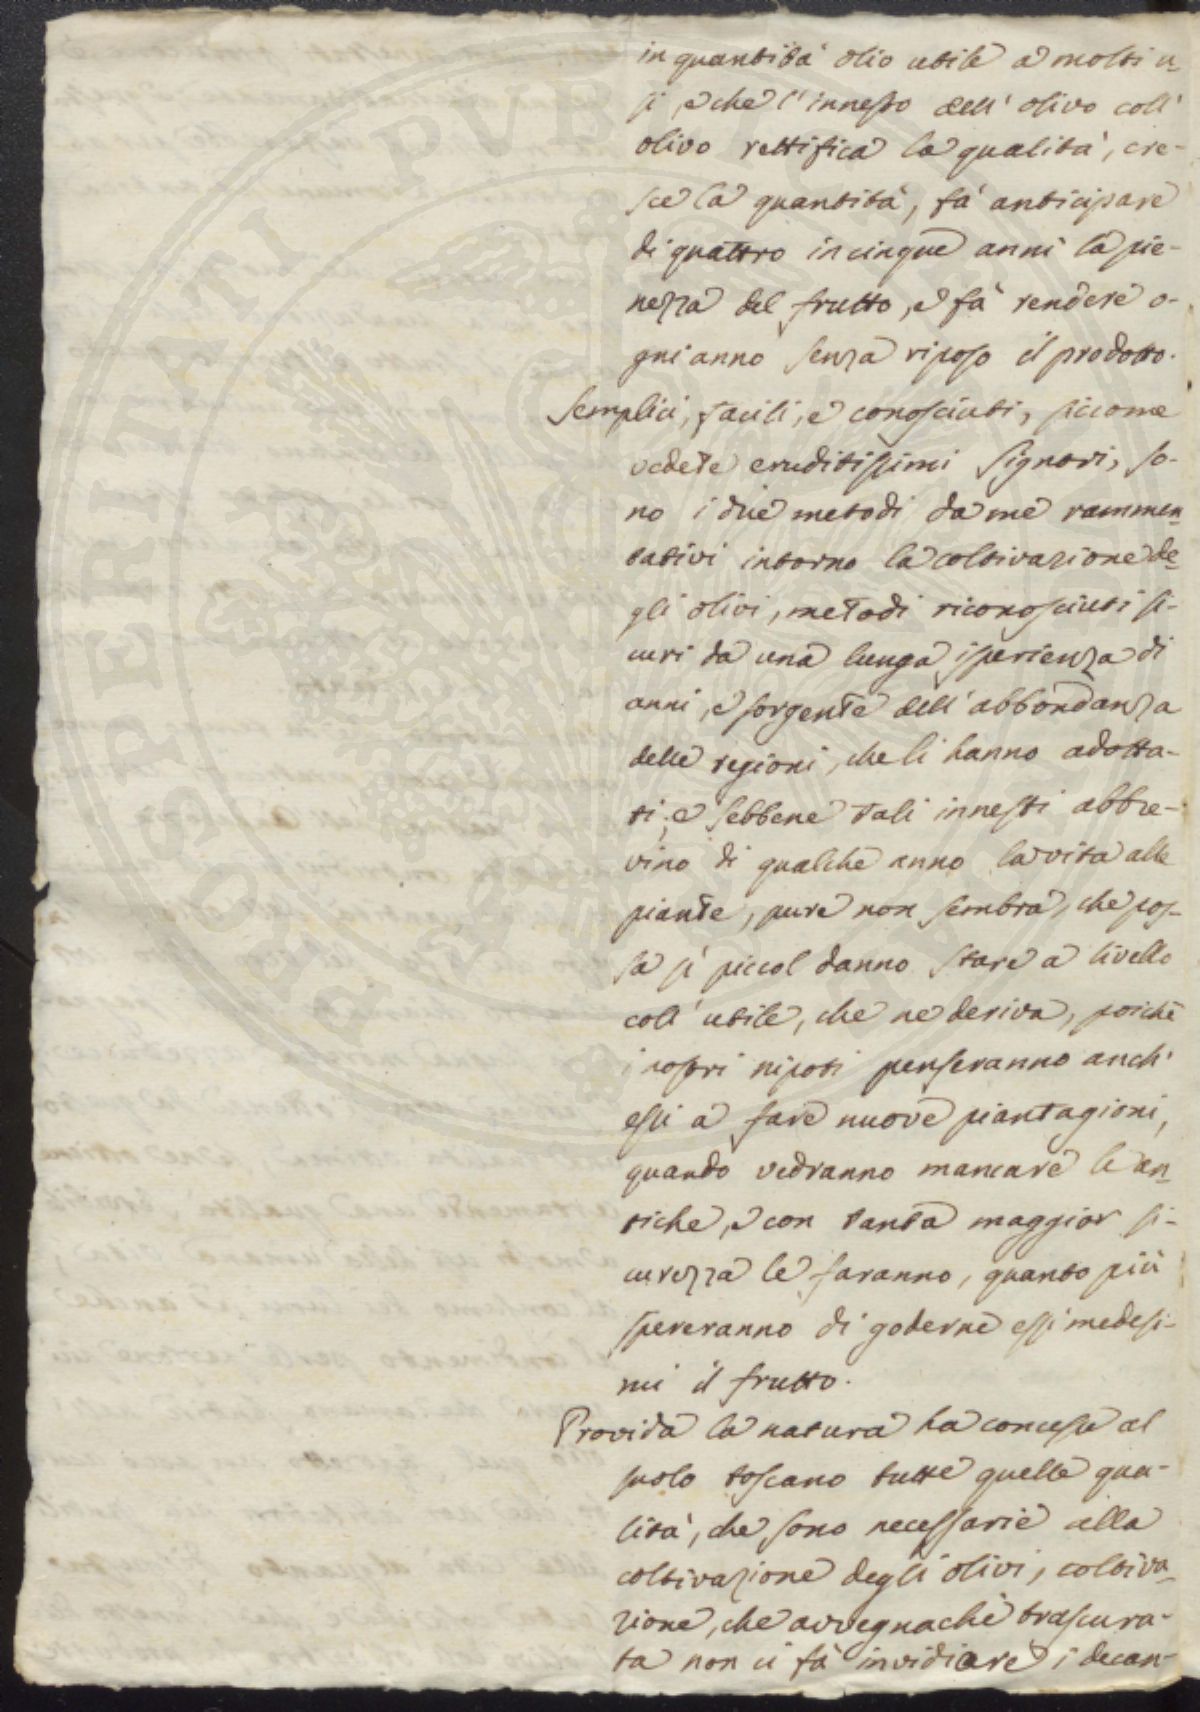 in quantità olio utile a molti u-
si, e che l'innesto dell'olivo coll'
olivo rettifica la qualità, cre-
sce la quantità, fà anticipare
di quattro in cinque anni la pie-
nezza del frutto, e fà rendere o-
gni anno senza riposo il prodotto.
Semplici, facili, e conosciuti, siccome
vedete eruditissimi Signori, so-
no i due metodi da me rammen-
tativi intorno la coltivazione de-
gli olivi, metodi riconosciuti si-
curi da una lunga isperienza di
anni, e sorgente dell'abbondanza
delle regioni, che li hanno adotta-
ti; e sebbene tali innesti abbre-
vino di qualche anno la vita alle
piante, pure non sembra, che pos-
sa sì piccol danno stare a livello
coll'utile, che ne deriva, poichè
i nostri nipoti penseranno anch'
essi a fare nuove piantagioni,
quando vedranno mancare le an-
tiche, e con tanta maggior si-
curezza le faranno, quanto più
spereranno di goderne essi medesi-
mi il frutto.
Provida la natura ha concesse al
suolo toscano tutte quelle qua-
lità, che sono necessarie alla
coltivazione degli olivi, coltiva-
zione, che avvegnachè trascura-
ta non ci fà invidiare i decan-
PROSPERITATI PVBLICAE